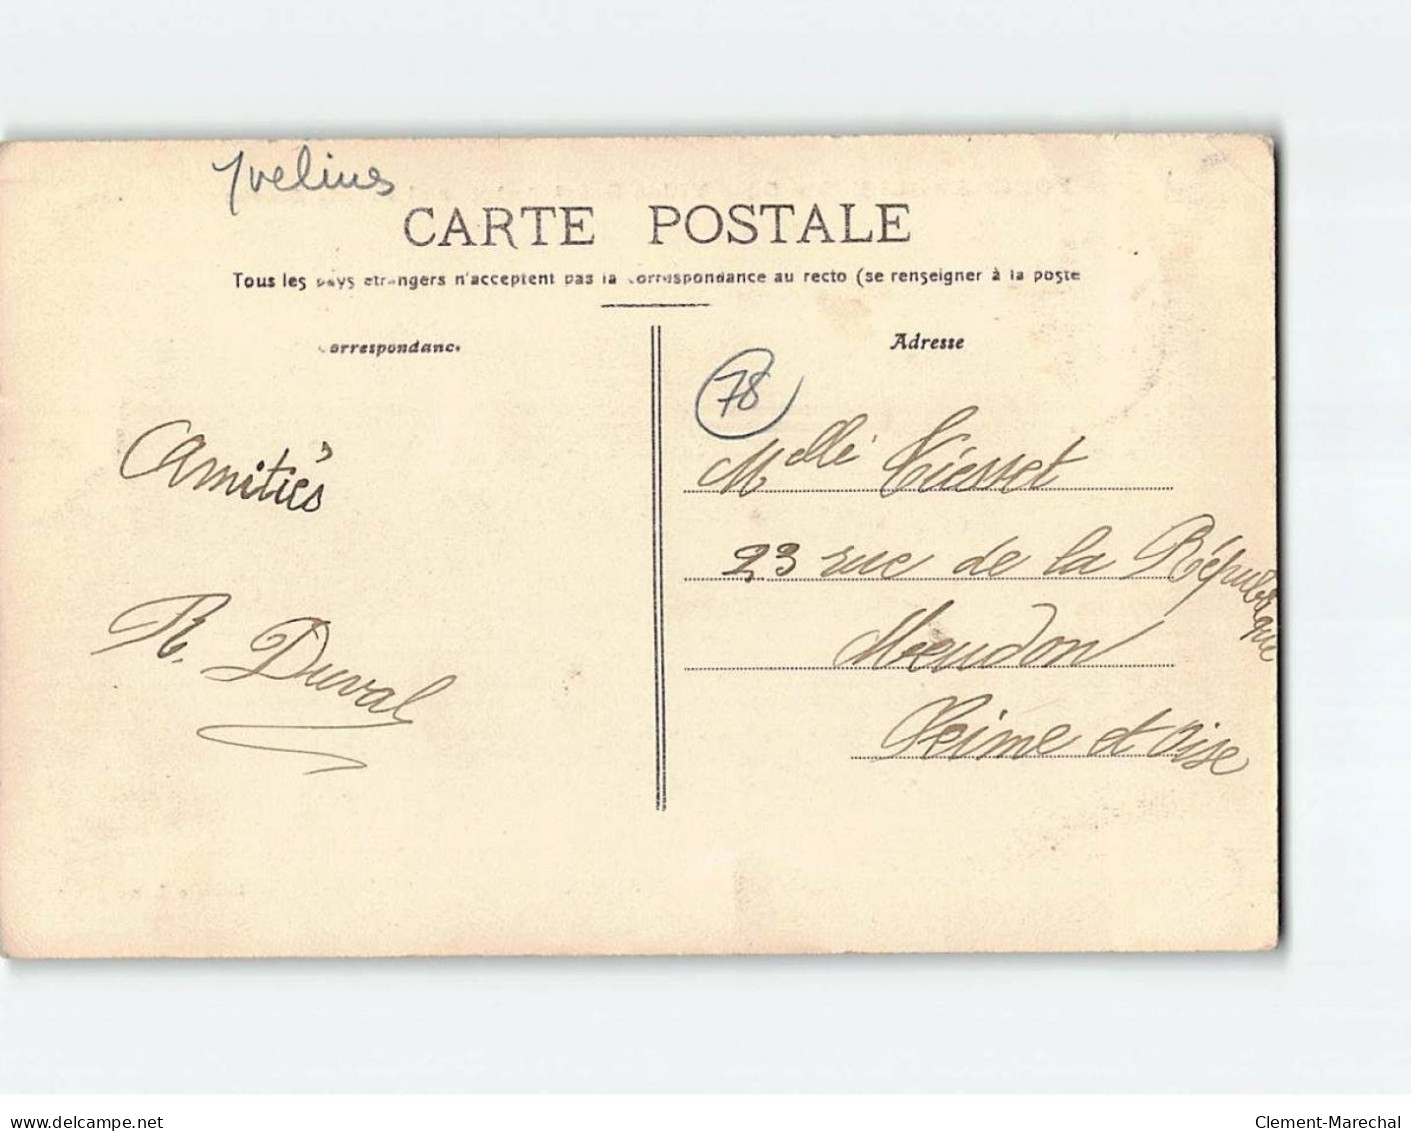 Yvelines
CARTE POSTALE
Tous les pays etrangers n'acceptent pas la correspondance au recto (se renseigner à la poste
Correspondance
Adresse
78
Amitiés
R. Duval
Melle
23 rue de la République
Meudon
Seine et Oise
www.delcampe.net
Clement-Marechal